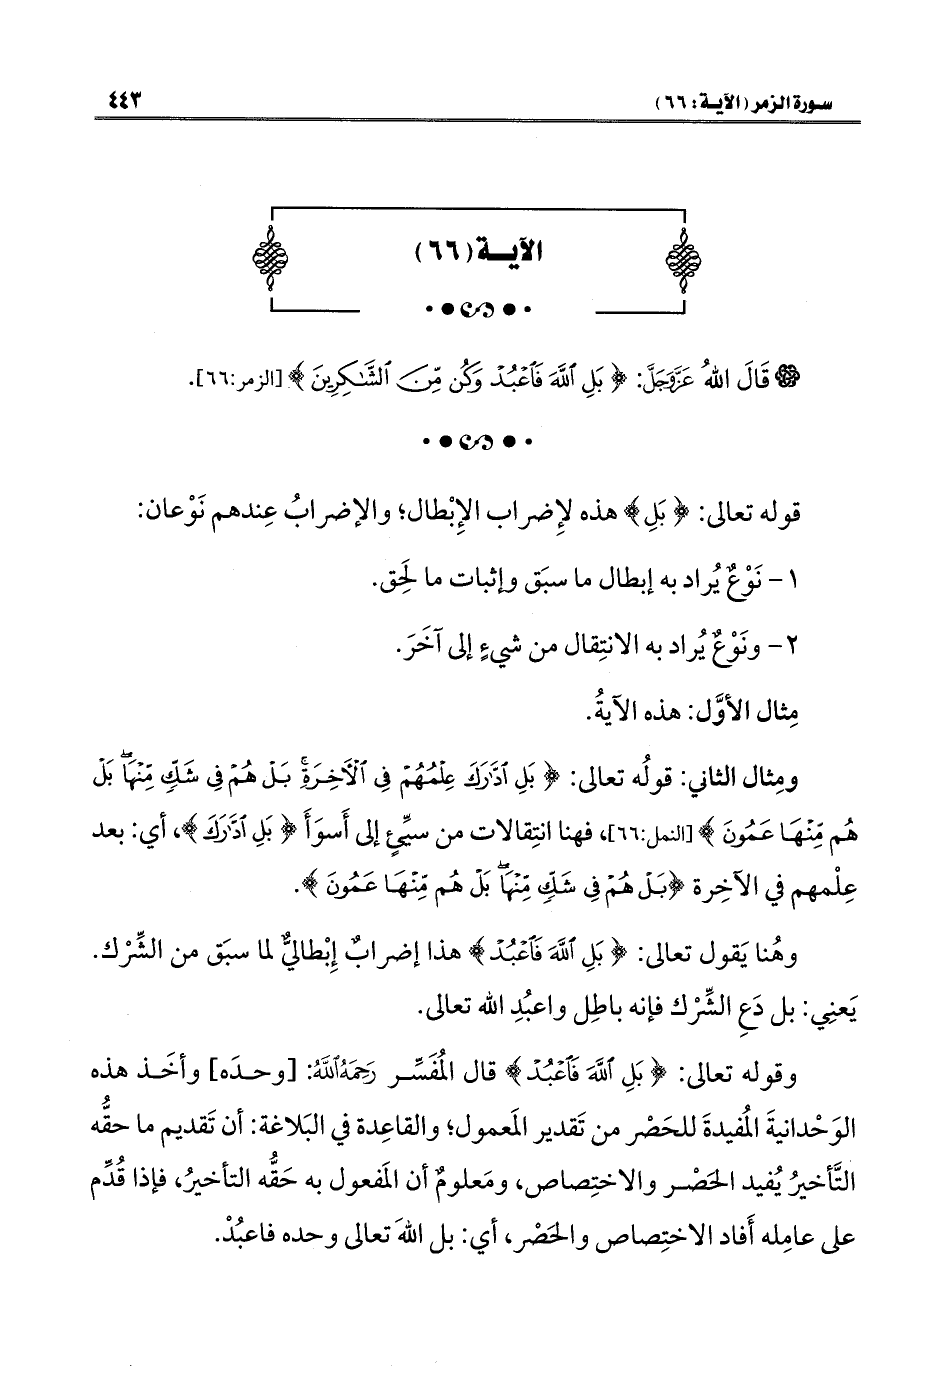 سورة الزمر (الآيـة: ٦٦)
٤٤٣
الآيــة (٦٦)
قَالَ اللهُ عَزَّوَجَلَّ: ﴿بَلِ ٱللَّهَ فَٱعْبُدْ وَكُن مِّنَ ٱلشَّٰكِرِينَ﴾ [الزمر:٦٦].
قوله تعالى: ﴿بَلِ﴾ هذه لِإضراب الإِبْطال؛ والإضرابُ عِندهم نَوْعان:
١- نَوْعٌ يُراد به إبطال ما سبَق وإثبات ما لَحِق.
٢- ونَوْعٌ يُراد به الانتِقال من شيءٍ إلى آخَرَ.
مِثال الأوَّل: هذه الآيةُ.
ومِثال الثاني: قولُه تعالى: ﴿بَلِ ٱدَّٰرَكَ عِلْمُهُمْ فِي ٱلْآخِرَةِۚ بَلْ هُمْ فِي شَكٍّ مِّنْهَاۖ بَلْ
هُم مِّنْهَا عَمُونَ﴾ [النمل:٦٦]، فهنا انتِقالات من سيِّئٍ إلى أَسوَأَ ﴿بَلِ ٱدَّٰرَكَ﴾، أي: بعد
عِلْمهم في الآخِرة ﴿بَلْ هُمْ فِي شَكٍّ مِّنْهَاۖ بَلْ هُم مِّنْهَا عَمُونَ﴾.
وهُنا يَقول تعالى: ﴿بَلِ ٱللَّهَ فَٱعْبُدْ﴾ هذا إضرابٌ إِبْطاليٌّ لما سبَق من الشِّرْك.
يَعنِي: بل دَعِ الشِّرْك فإنه باطِل واعبُدِ الله تعالى.
وقوله تعالى: ﴿بَلِ ٱللَّهَ فَٱعْبُدْ﴾ قال المُفَسِّـر رَحِمَهُ ٱللَّهُ: [وحدَه] وأخَذ هذه
الوَحْدانيةَ المُفيدةَ للحَصْر من تَقدير المَعمول؛ والقاعِدة في البَلاغة: أن تَقديم ما حقُّه
التَّأخيرُ يُفيد الحَصْـر والاختِصاص، ومَعلومٌ أن المَفعول به حَقُّه التأخيرُ، فإذا قُدِّم
على عامِله أَفاد الاختِصاص والحَصْر، أي: بل اللهَ تعالى وحده فاعبُدْ.